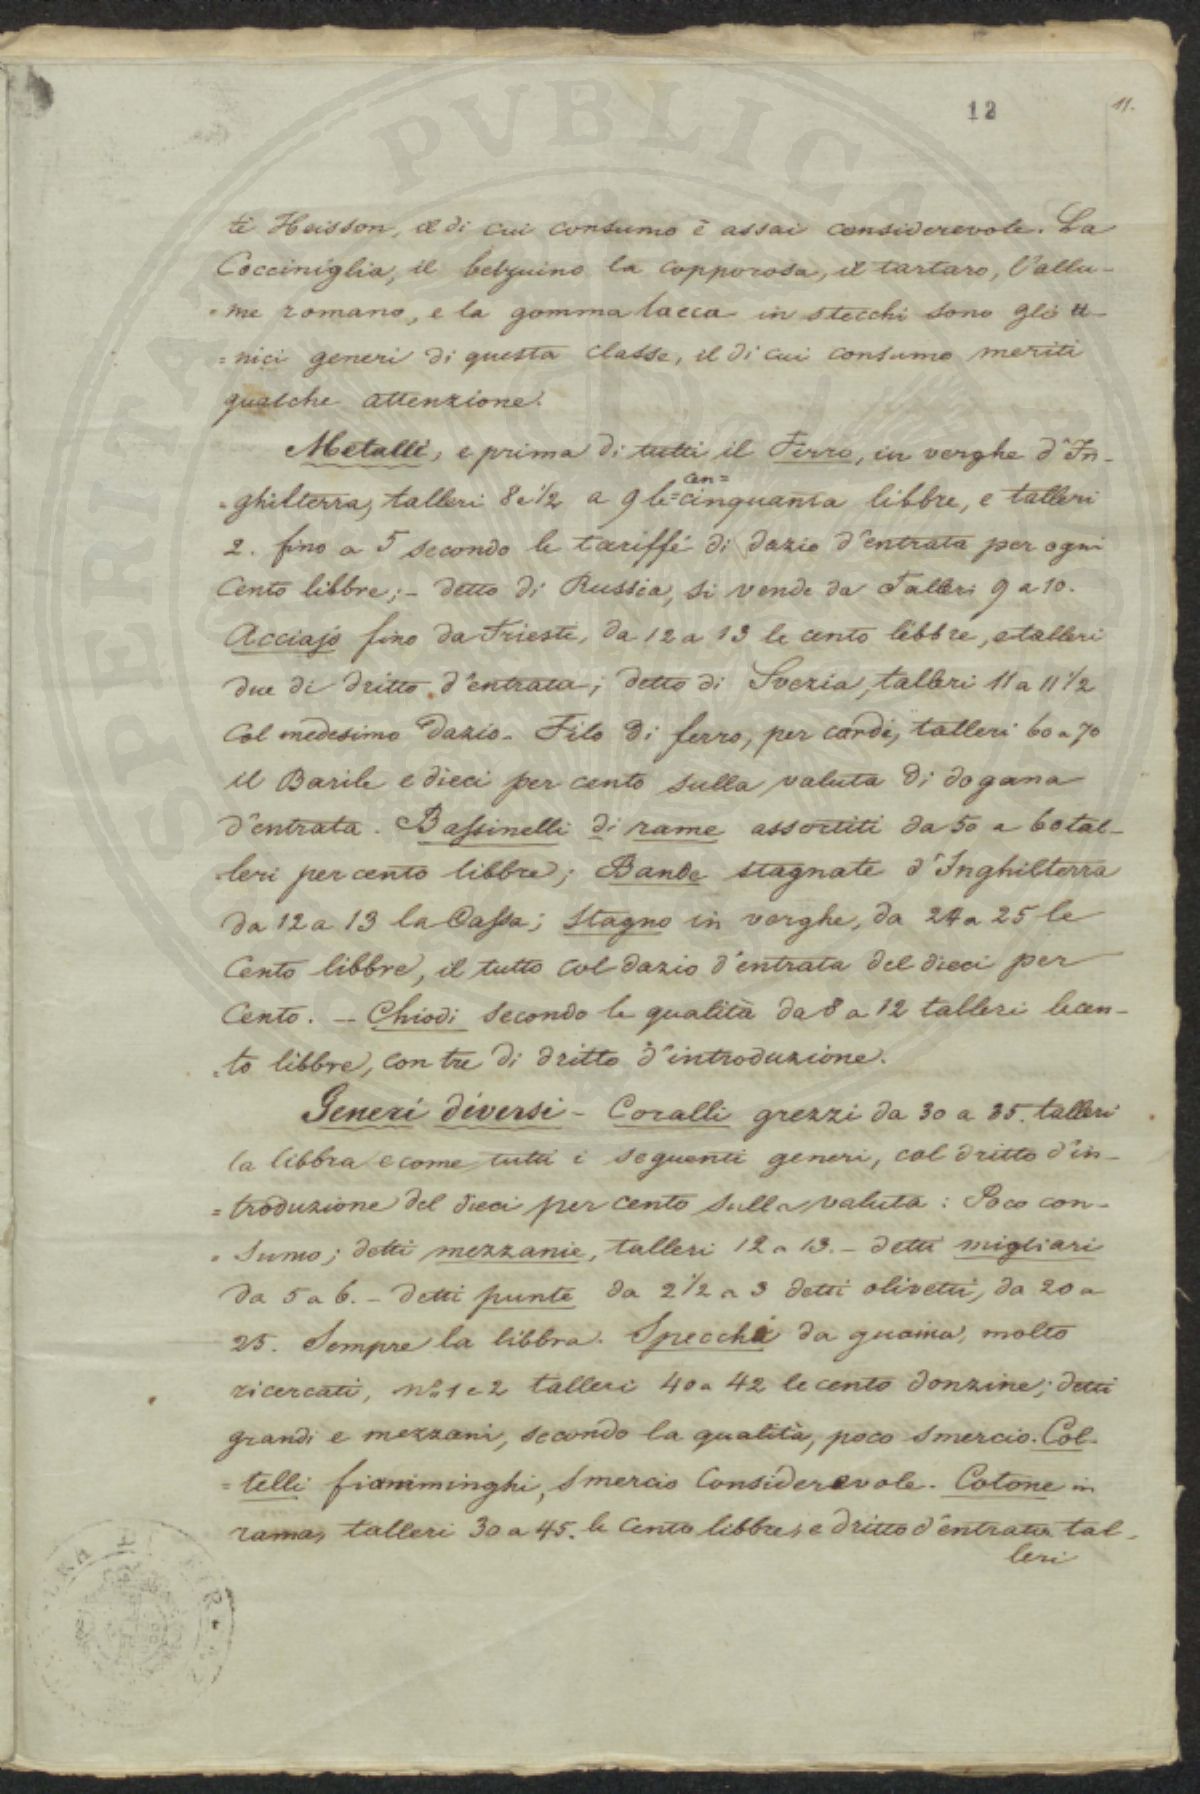 12
11.
tè Heisson, il di cui consumo è assai considerevole. La
Cocciniglia, il belzuino la copporosa, il tartaro, l'allu-
=me romano, e la gomma lacca in stecchi sono gli u-
=nici generi di questa classe, il di cui consumo meriti
qualche attenzione.
Metalli, e prima di tutti il Ferro, in verghe d'In-
=ghilterra, talleri 8 e 1/2 a 9 le=cinquanta libbre, e talleri
cen=
2. fino a 5 secondo le tariffe di dazio d'entrata per ogni
Cento libbre; - detto di Russia, si vende da Talleri 9 a 10.
Acciajo fino da Trieste, da 12 a 13 le cento libbre, e talleri
due di dritto d'entrata; detto di Svezia, talleri 11 a 11 1/2
Col medesimo Dazio. Filo di ferro, per corde, talleri 60 a 70
il Barile e dieci per cento sulla valuta di dogana
d'entrata. Bassinelli di rame assortiti da 50 a 60 tal-
leri per cento libbre; Bande stagnate d'Inghilterra
da 12 a 13 la Cassa; Stagno in verghe, da 24 a 25 le
Cento libbre, il tutto col dazio d'entrata del dieci per
Cento. - Chiodi secondo la qualità da 8 a 12 talleri le cen-
to libbre, con tre di dritto d'introduzione.
Generi diversi - Coralli grezzi da 30 a 35. talleri
la libbra e come tutti i seguenti generi, col dritto d'in-
=troduzione del dieci per cento sulla valuta: Poco con-
sumo; detti mezzanie, talleri 12 a 13. - detti migliari
da 5 a 6. - detti punte da 2 1/2 a 3 detti olivetti, da 20 a
25. Sempre la libbra. Specchi da guaina, molto
ricercati, n.º 1 e 2 talleri 40 a 42 le cento donzine; detti
grandi e mezzani, secondo la qualità, poco smercio. Col-
=telli fiamminghi, smercio Considerevole. Cotone in
rama, talleri 30 a 45. le Cento libbre, e dritto d'entrata tal-
leri